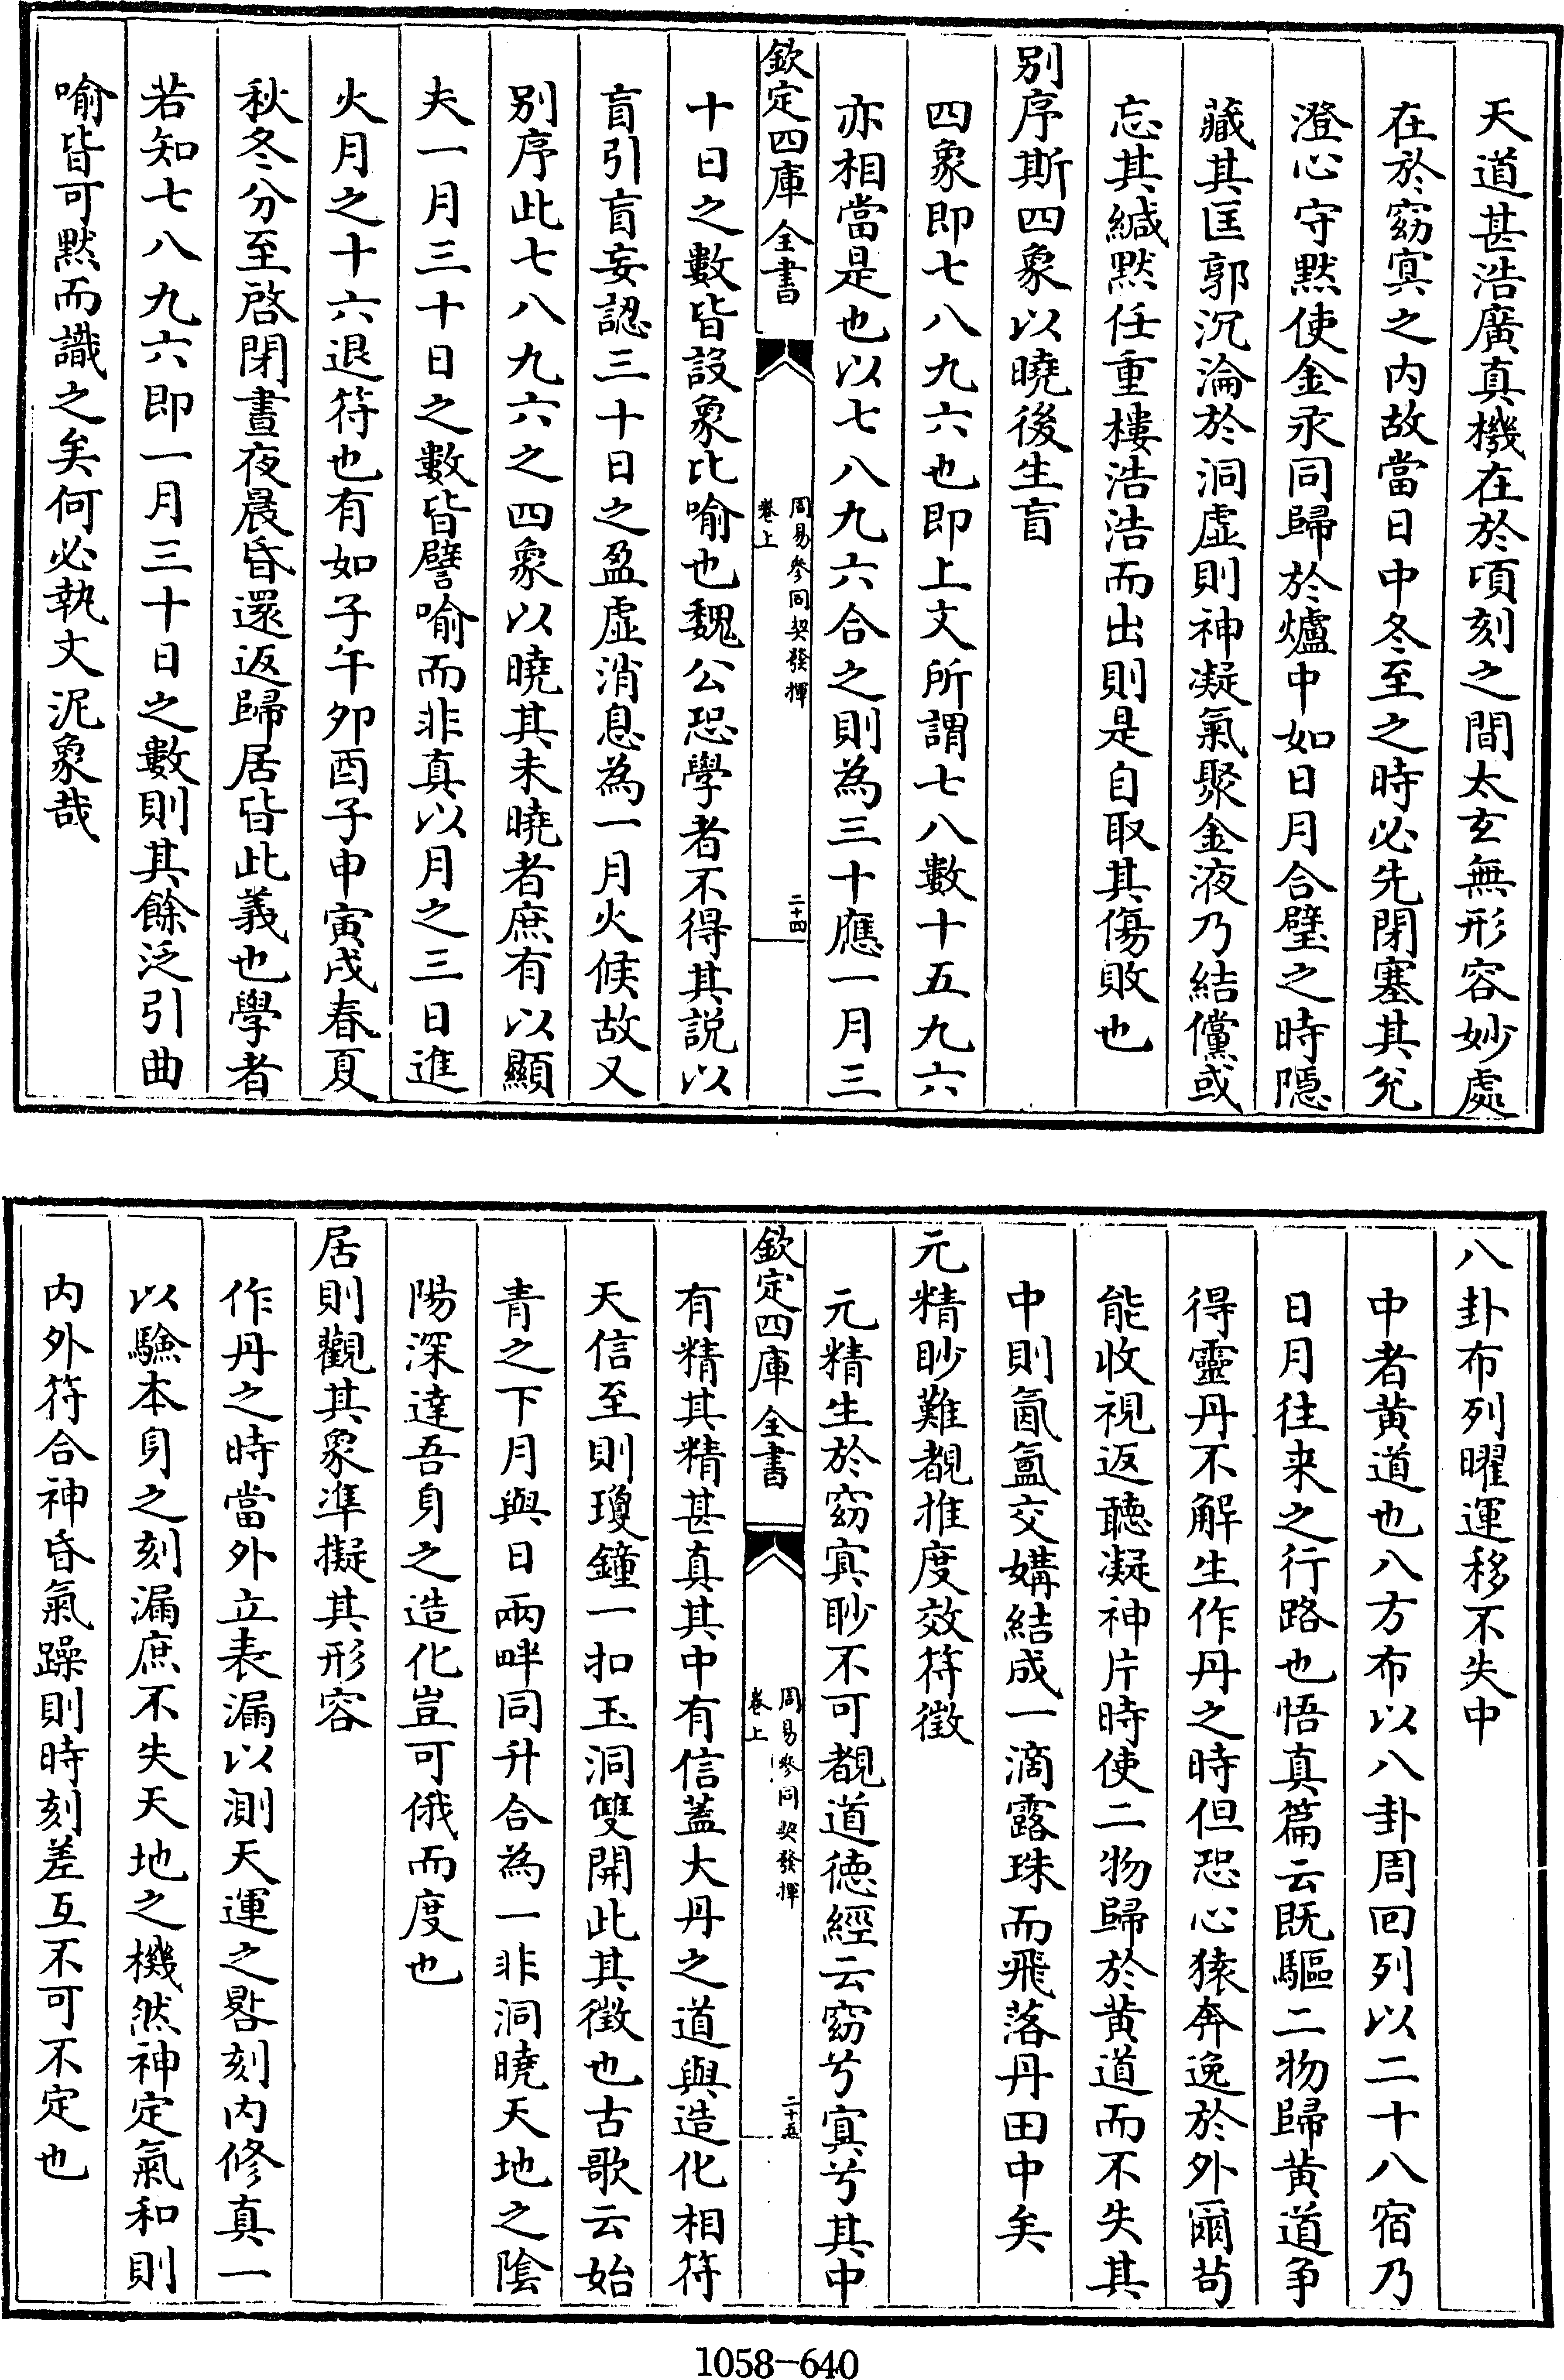 天道甚浩廣真機在於頃刻之間太玄無形容妙處
在於窈冥之内故當日中冬至之時必先閉塞其兊
澄心守黙使金汞同歸於爐中如日月合璧之時隠
藏其匡郭沉淪於洞虚則神凝氣聚金液乃結儻或
忘其緘黙任重樓浩浩而出則是自取其傷敗也
别序斯四象以曉後生盲
四象即七八九六也即上文所謂七八數十五九六
亦相當是也以七八九六合之則為三十應一月三
欽定四庫全書
周易參同契發揮
卷上
二十四
十日之數皆設象比喻也魏公恐學者不得其説以
盲引盲妄認三十日之盈虚消息為一月火候故又
别序此七八九六之四象以曉其未曉者庶有以顯
夫一月三十日之數皆譬喻而非真以月之三日進
火月之十六退符也有如子午夘酉子申寅戌春夏
秋冬分至啓閉晝夜晨昏還返歸居皆此義也學者
若知七八九六即一月三十日之數則其餘泛引曲
喻皆可黙而識之矣何必執文泥象哉
八卦布列曜運移不失中
中者黄道也八方布以八卦周回列以二十八宿乃
日月往来之行路也悟真篇云既驅二物歸黄道争
得靈丹不解生作丹之時但恐心猿奔逸於外爾茍
能收視返聽凝神片時使二物歸於黄道而不失其
中則氤氲交媾結成一滴露珠而飛落丹田中矣
元精眇難覩推度效符徴
元精生於窈冥眇不可覩道徳經云窈兮冥兮其中
欽定四庫全書
周易參同契發揮
卷上
二十五
有精其精甚真其中有信蓋大丹之道與造化相符
天信至則瓊鐘一扣玉洞雙開此其徴也古歌云始
青之下月與日兩畔同升合為一非洞曉天地之隂
陽深達吾身之造化豈可俄而度也
居則觀其象凖擬其形容
作丹之時當外立表漏以測天運之晷刻内修真一
以驗本身之刻漏庶不失天地之機然神定氣和則
内外符合神昏氣躁則時刻差互不可不定也
1058-640